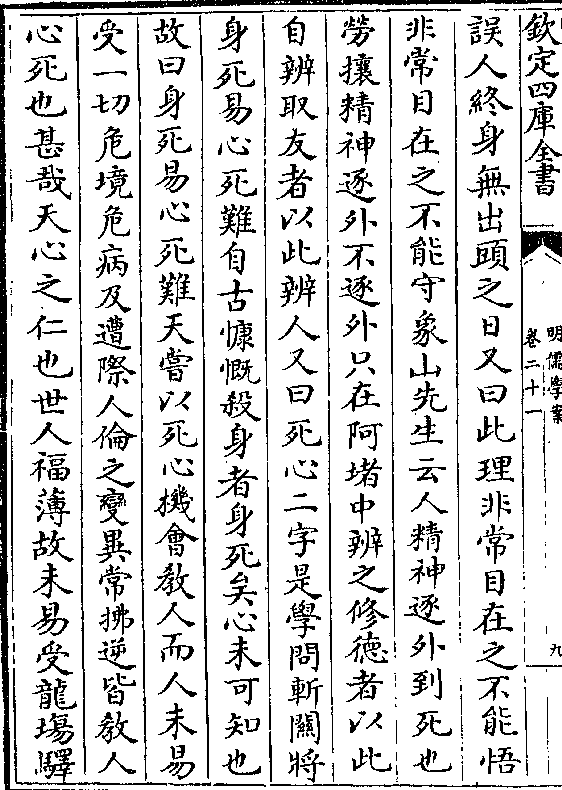 欽定四庫全書
明儒學案
卷二十一
九
誤人終身無出頭之日又曰此理非常目在之不能悟
非常目在之不能守象山先生云人精神逐外到死也
勞攘精神逐外不逐外只在阿堵中辨之修德者以此
自辨取友者以此辨人又曰死心二字是學問斬關將
身死易心死難自古慷慨殺身者身死矣心未可知也
故曰身死易心死難天嘗以死心機會教人而人未易
受一切危境危病及遭際人倫之變異常拂逆皆教人
心死也甚哉天心之仁也世人福薄故未易受龍塲驛